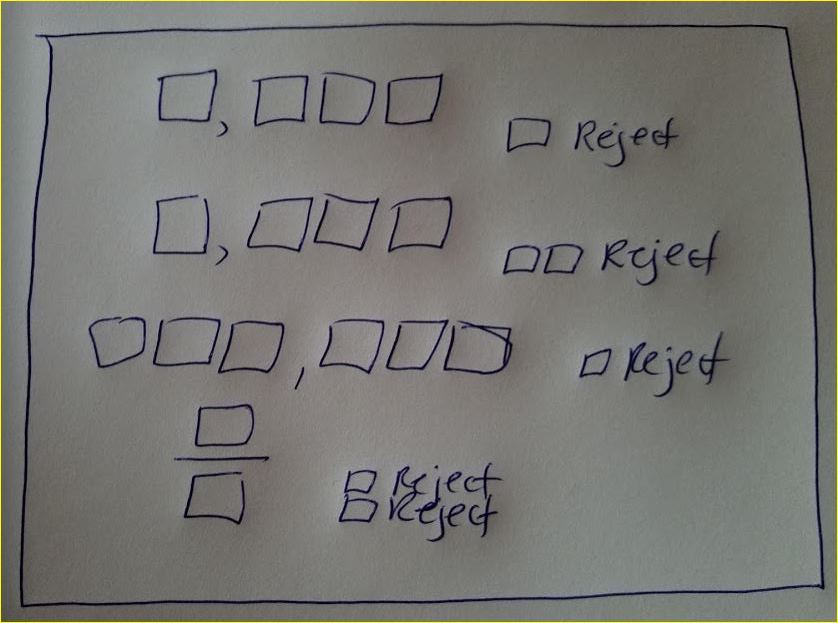 □, □□□ □ Reject
□, □□□ □□ Reject
□□□, □□□ □ Reject
□
□
□ Reject
□ Reject